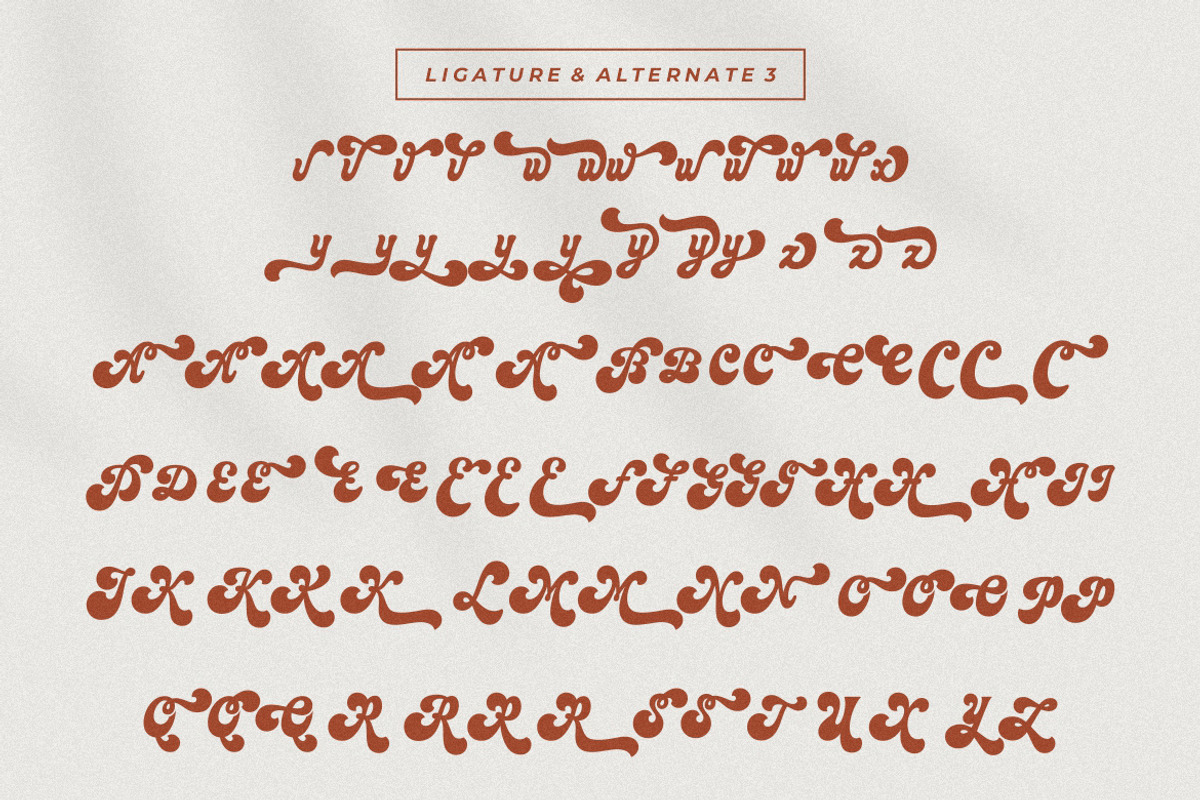 LIGATURE & ALTERNATE 3
v v v v w w w w w w w x
y y y y y y y y z z z
A A A A A A B B C C C C C C C
D D E E E E E E E F F G G G H H H I I
J K K K K L M M N N O O O P P
Q Q Q R R R R S S T U X Y Z